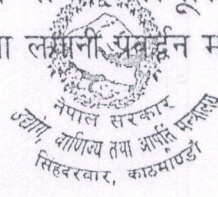 लगानी प्रवर्द्धन
नेपाल सरकार
उद्योग, वाणिज्य तथा आपूर्ति मन्त्रालय
सिंहदरवार, काठमाण्डौ